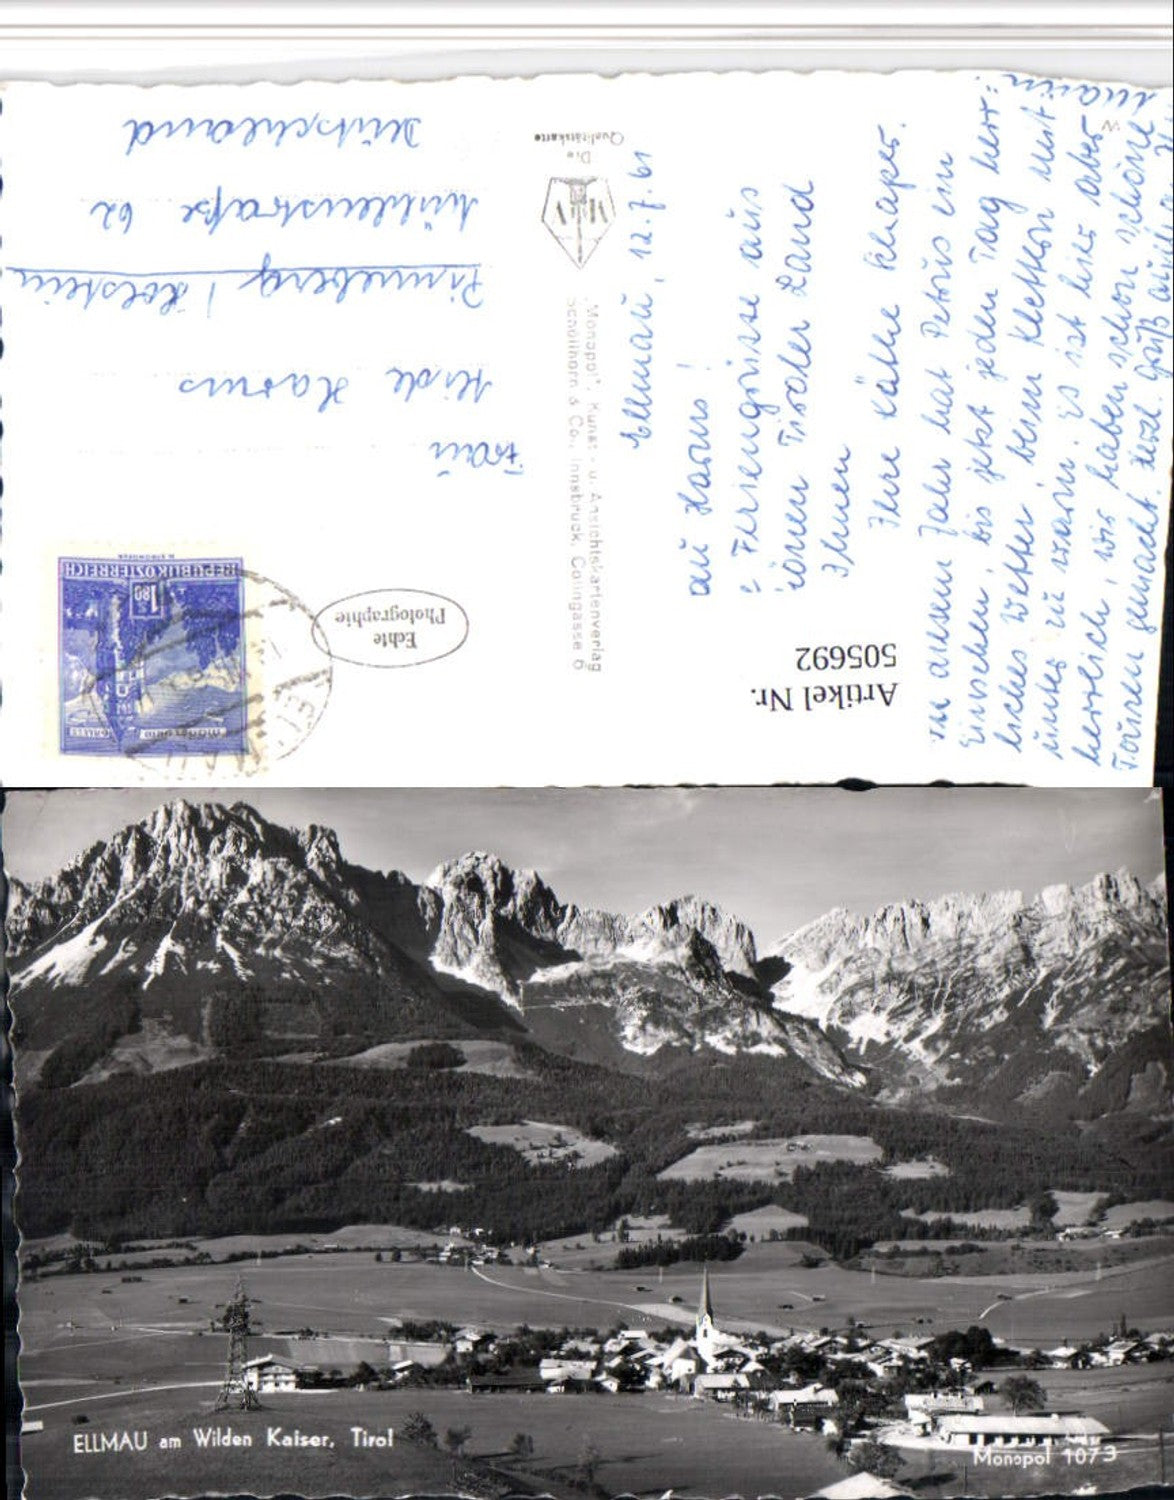 Ellmau, 12.7.61
au Harms!
Feriengrüsse aus
Tiroler Land
Ihnen
Ihre Käthe Schaper.
In diesem Jahr hat Petrus ein
Einsehen, bis jetzt jeden Tag herr-
liches Wetter, beim Klettern mit-
unter zu warm. Es ist hier aber
herrlich, wir haben schon schöne
Touren gemacht. Herzl. Gruß auch
Frau
Harms
Pinneberg / Holstein
Mühlenstraße 62
Deutschland
REPUBLIK ÖSTERREICH
1.80
Echte
Photographie
"Monopol", Kunst- u. Ansichtskartenverlag
Schöllhorn & Co., Innsbruck, Collingasse 6
Die
Qualitätskarte
Artikel Nr.
505692
ELLMAU am Wilden Kaiser, Tirol
Monopol 1073